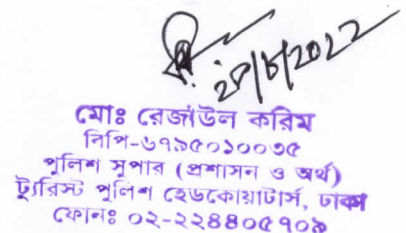 ২৮/৮/২০২২
মোঃ রেজাউল করিম
বিপি-৬৭৯৫০১০০৩৫
পুলিশ সুপার (প্রশাসন ও অর্থ)
ট্যুরিস্ট পুলিশ হেডকোয়াটার্স, ঢাকা
ফোনঃ ০২-২২৪৪০৫৭০৯